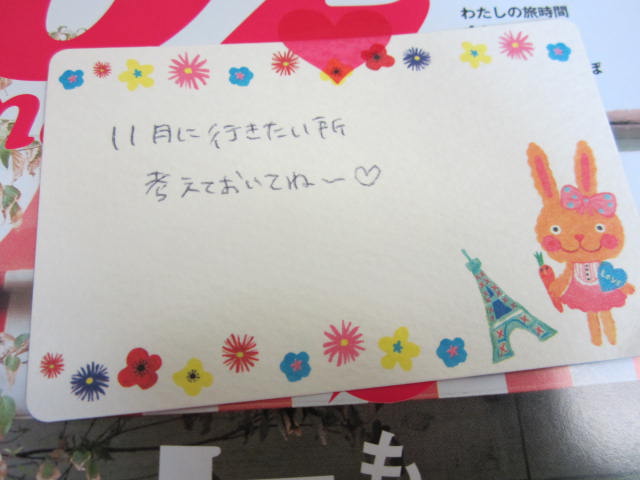 わたしの旅時間
11月に行きたい所
考えておいてねー♡
Love
も